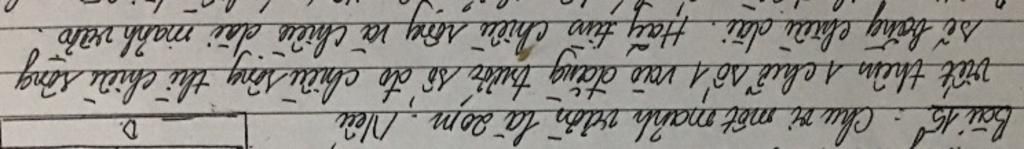 Bài 15: Chu vi một mảnh vườn là 20m. Nếu
viết thêm 1 chữ số 1 vào đằng trước số đo chiều rộng thì chiều rộng
sẽ bằng chiều dài. Hãy tìm chiều rộng và chiều dài mảnh vườn.
D.